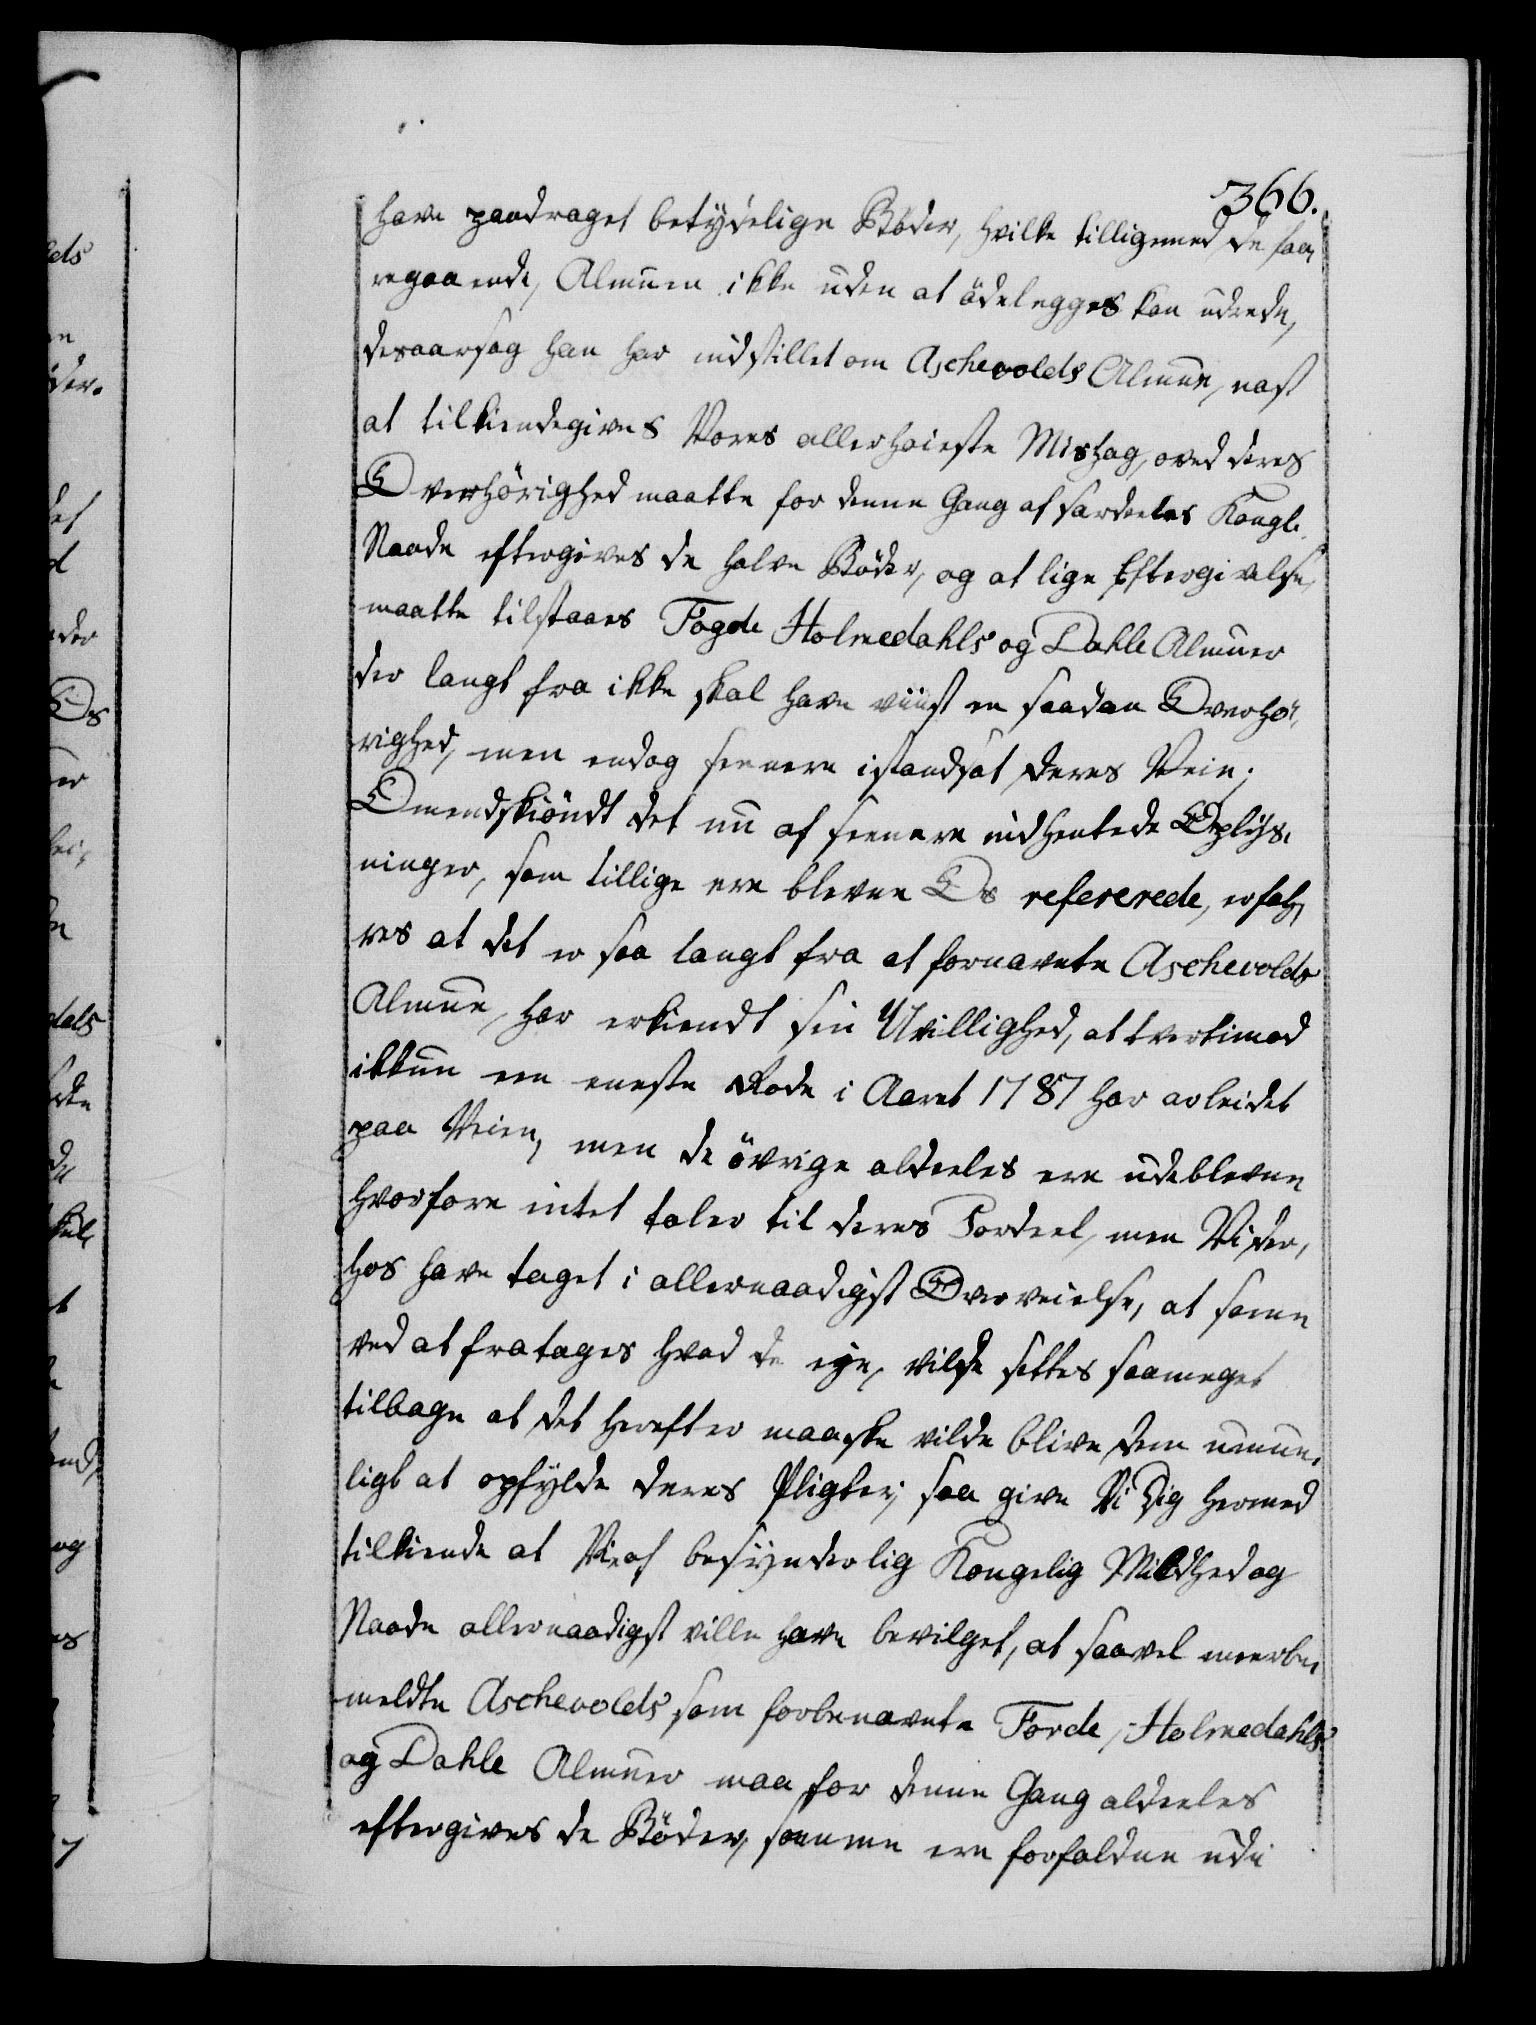 366.
have paadraget betÿdelige Böder, hvilke tilligemed de faa
regaaende, Almuen ikke uden at ödelegges kan udrede,
desaarsag han har indstillet om Aschevolds Almue, nest
at tilkiendegives Vores allerhöieste Mishag, over deres
Overhörighed maatte for denne Gang af særdeeles Kongl.
Naade eftergives de halve Böder, og at lige Eftergivelse,
maatte tilstaaes Fogde Holmedahls og Dahle Almuer
der langt fra ikke skal have viist en saadan Overhö,
righed, men endog seenere istandsat deres Veie;
Omendskiöndt det nu af seenere indhentede Oplÿs,
ninger, som tillige ere blevne Os refererede, erfah,
res at det er saa langt fra at fornævnte Aschevolds
Almue, har erkiendt sin Uvillighed, at tvertimod
ikkun een eneste Rode i Aaret 1787 har arbeidet
paa Veien, men de övrige aldeeles ere udeblevne
hvorfore intet taler til deres Fordeel, men Vi der,
hos have taget i allernaadigst Overveielse, at samme
ved at fratages hvad de eje, vilde settes saameget
tilbage at det herefter maaske vilde blive dem umue,
ligt at opfÿlde deres Pligter; saa give Vi Dig hermed
tilkiende at Vi af besÿnderlig Kongelig Mildhed og
Naade allernaadigst ville have bevilget, at saavel meerbe,
meldte Aschevolds som forbenævnte Förde, Holmedahls
og Dahle Almuer maa for denne Gang aldeeles
eftergives de Böder, som me ere forfaldne udi